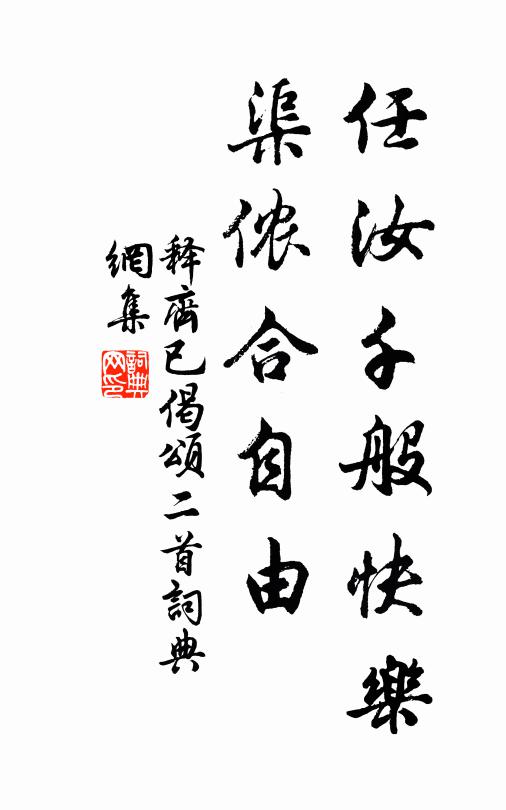 任汝千般快樂
渠侬合自由
释齊已偈頌二首詞典
網集
詞典网印